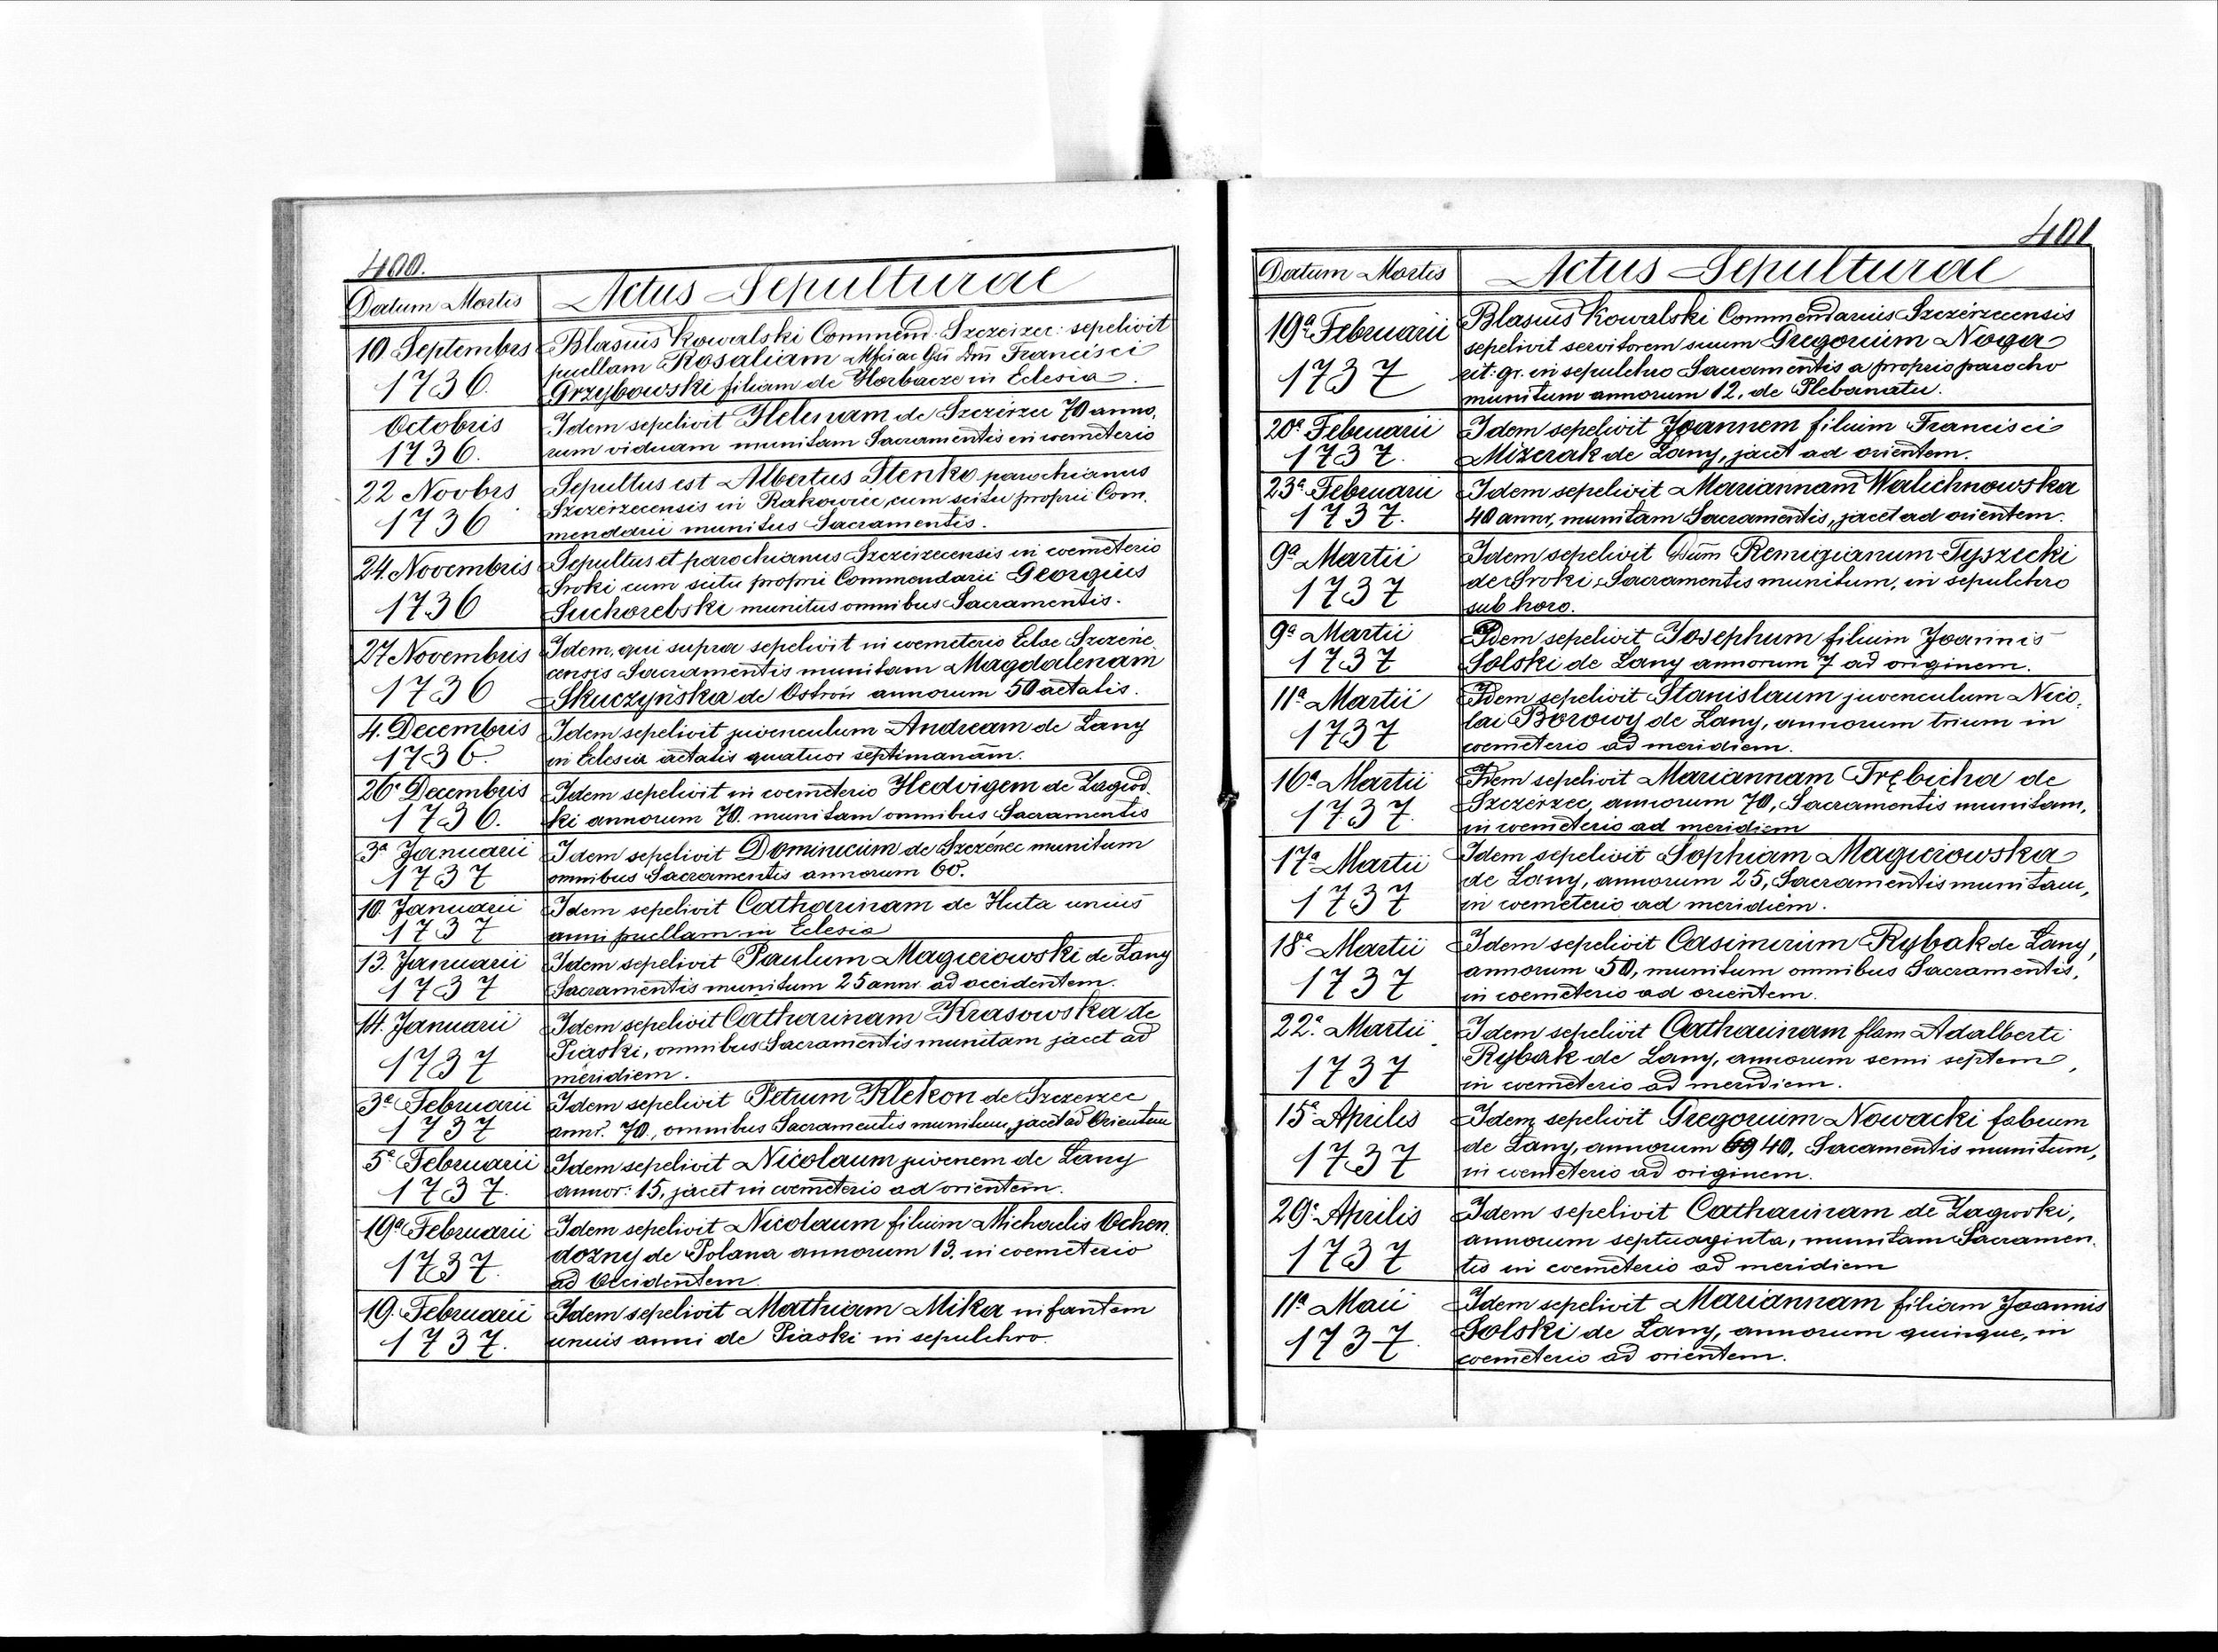 400.
Datum Mortis
Actus Sepulturae
10 Septembrs
1736.
Blasius Kowalski Commend. Szczeizec: sepelivit
puellam Rosaliam Mfci ac Gsi Dni Francisci
Grzybowski filiam de Horbacze in Eclesia.
Octobris
1736.
Idem sepelivit Helenam de Szczerzec 70 anno,
rum viduam munitam Sacramentis in coemeterio
22 Novbrs
1736
Sepultus est Albertus Stenko parochianus
Szczerzecensis in Rakowiec, cum scitu proprii Com,
mendarii munitus Sacramentis.
24. Novembris
1736
Sepultus et parochianus Szczeizecensis in coemeterio
Sroki cum scitu proprii Commendarii Georgius
Suchorebski munitus omnibus Sacramentis.
27 Novembris
1736
Idem, qui supra sepelivit in coemeterio Eclae Szczerze,
censis Sacramentis munitam Magdalenam
Skuczyńska de Ostrow annorum 50 aetatis.
4. Decembris
1736.
Idem sepelivit juvenculum Andream de Lany
in Eclesia aetatis quatuor septimanam.
26a Decembris
1736.
Idem sepelivit in coemeterio Hedvigem de Zagrod,
ki annorum 70. munitam omnibus Sacramentis
3a Januarii
1737
Idem sepelivit Dominicum de Szczerzec munitum
omnibus Sacramentis annorum 60.
10. Januarii
1737
Idem sepelivit Catharinam de Huta unius
anni puellam in Eclesia
13. Januarii
1737
Idem sepelivit Paulum Magierowski de Lany
Sacramentis munitum 25 annr. ad occidentem.
14. Januarii
1737
Idem sepelivit Catharinam Krasowska de
Piaski, omnibus Sacramentis munitam jacet ad
meridiem.
3a Februarii
1737
Idem sepelivit Petrum Klekon de Szczerzec
annr. 70., omnibus Sacramentis munitum, jacet ad Orientem
5a Februarii
1737.
Idem sepelivit Nicolaum juvenem de Lany
annor: 15, jacet in coemeterio ad orientem.
19a Februarii
1737.
Idem sepelivit Nicolaum filium Michaelis Ochen,
dozny de Polana annorum 13. in coemeterio
ad Occidentem.
19. Februarii
1737.
Idem sepelivit Mathiam Mika infantem
unuis anni de Piaski in sepulchro.
401
Datum Mortis
Actus Sepulturae
19a Februarii
1737
Blasius Kowalski Commendarius Szczerzecensis
sepelivit servitorem suum Gregorium Noga
rit: gr. in sepulchro Sacramentis a proprio parocho
munitum annorum 12, de Plebanatu.
20a Februarii
1737.
Idem sepelivit Joannem filium Francisci
Mizerak de Lany, jacet ad orientem.
23a Februarii
1737.
Idem sepelivit Mariannam Walichnowska
40 annr, munitam Sacramentis, jacet ad orientem.
9a Martii
1737
Idem sepelivit Gsum Remigianum Tyszecki
de Sroki, Sacramentis munitum, in sepulchro
sub horo.
9a Martii
1737
Idem sepelivit Josephum filium Joannis
Solski de Lany annorum 7 ad originem.
11a Martii
1737
Idem sepelivit Stanislaum juvenculum Nico,
lai Borowy de Lany, annorum trium in
coemeterio ad meridiem.
16a Martii
1737.
Idem sepelivit Mariannam Trębicha de
Szczerzec, annorum 70, Sacramentis munitam,
in coemeterio ad meridiem
17a Martii
1737
Idem sepelivit Sophiam Magierowska
de Lany, annorum 25, Sacramentis munitam,
in coemeterio ad meridiem.
18a Martii
1737
Idem sepelivit Casimirum Rybak de Lany,
annorum 50, munitum omnibus Sacramentis,
in coemeterio ad orientem.
22a Martii
1737
Idem sepelivit Catharinam flam Adalberti
Rybak de Lany, annorum semi septem,
in coemeterio ad meridiem.
15a Aprilis
1737
Idem sepelivit Gregorium Nowacki fabrum
de Lany, annorum 40, Sacamentis munitum,
in coemeterio ad originem.
29a Aprilis
1737
Idem sepelivit Catharinam de Zagrodki,
annorum septuaginta, munitam Sacramen,
tis in coemeterio ad meridiem
11a Maii
1737.
Idem sepelivit Mariannam filiam Joannis
Solski de Lany, annorum quinque, in
coemeterio ad orientem.